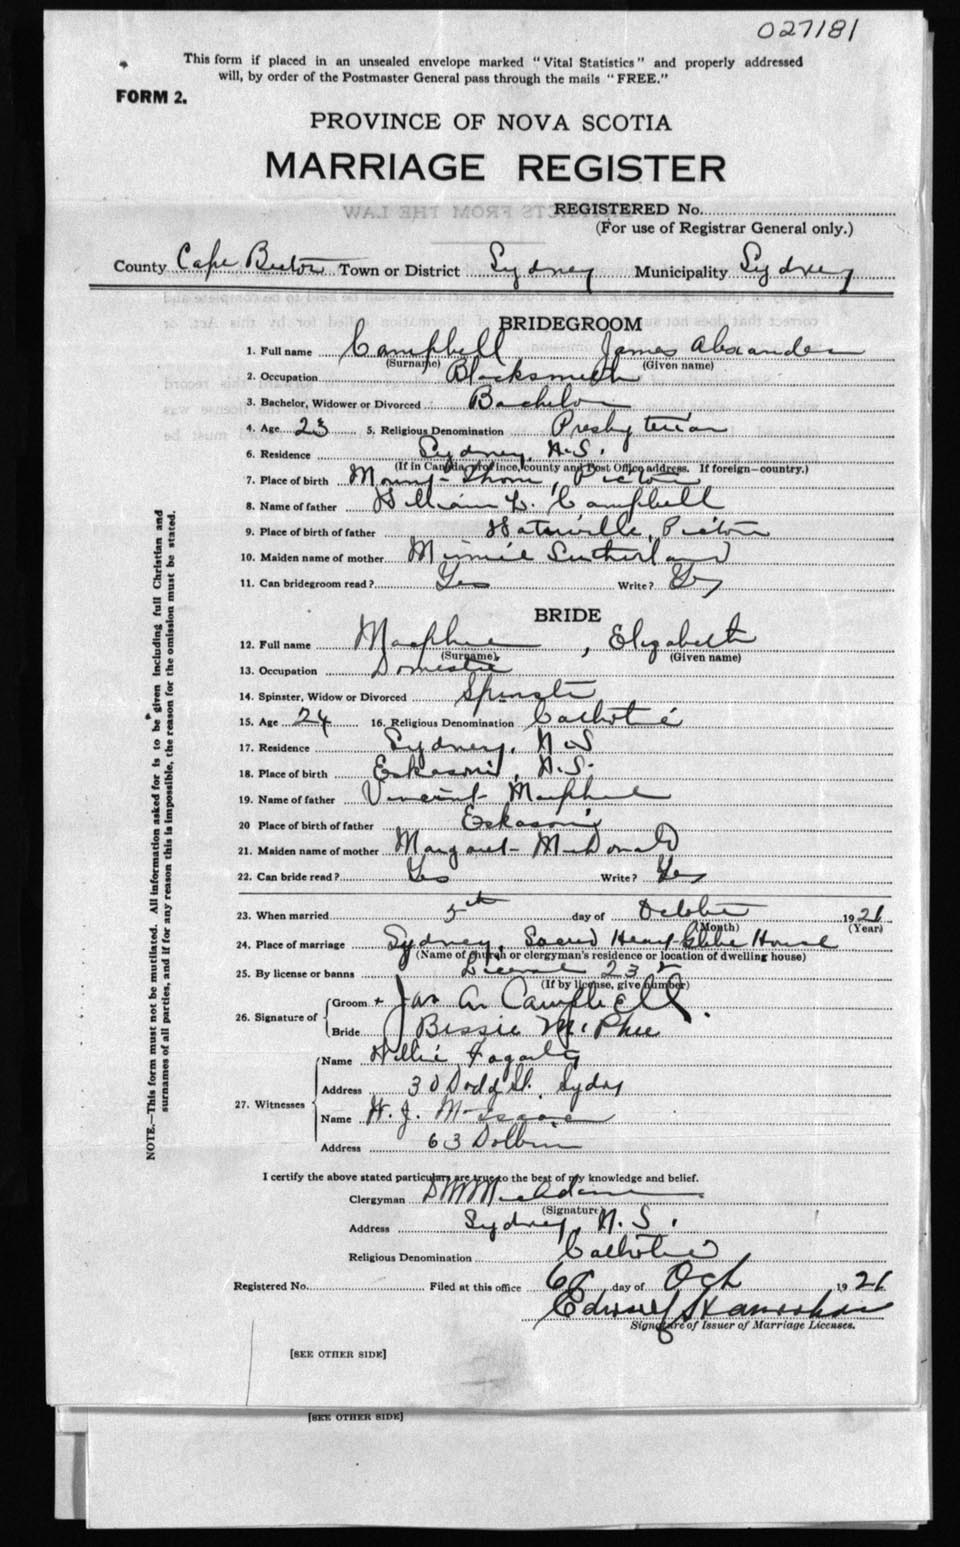 027181
This form if placed in an unsealed envelope marked "Vital Statistics" and properly addressed
will, by order of the Postmaster General pass through the mails "FREE."
FORM 2.
PROVINCE OF NOVA SCOTIA
MARRIAGE REGISTER
REGISTERED No.
(For use of Registrar General only.)
County Cape Breton Town or District Sydney Municipality Sydney
BRIDEGROOM
1. Full name Campbell James Alexander
(Surname) (Given name)
2. Occupation Blacksmith
3. Bachelor, Widower or Divorced Bachelor
4. Age 23 5. Religious Denomination Presbyterian
6. Residence Sydney, N.S.
(If in Canada, province, county and Post Office address. If foreign—country.)
7. Place of birth Mount Thom, Pictou
8. Name of father William Campbell
9. Place of birth of father Pictou
10. Maiden name of mother Minnie Sutherland
11. Can bridegroom read? Yes Write? Yes
BRIDE
12. Full name Macphee, Elizabeth
(Surname) (Given name)
13. Occupation Domestic
14. Spinster, Widow or Divorced Spinster
15. Age 24 16. Religious Denomination Catholic
17. Residence Sydney, N S
18. Place of birth Eskasoni, N.S.
19. Name of father Vincent Macphee
20 Place of birth of father Eskasoni
21. Maiden name of mother Margaret McDonald
22. Can bride read? Yes Write? Yes
23. When married 5th day of October 1921
(Month) (Year)
24. Place of marriage Sydney, Sacred Heart Glebe House
(Name of church or clergyman's residence or location of dwelling house)
25. By license or banns License
(If by license, give number)
26. Signature of
Groom + Jas A Campbell.
Bride Bessie McPhee
27. Witnesses
Name Willie Fogarty
Address 30 Dodd St. Sydney
Name H. J. McIsaac
Address 63 Dolbin
I certify the above stated particulars are true to the best of my knowledge and belief.
Clergyman MacAdam
(Signature)
Address Sydney, N.S.
Religious Denomination Catholic
Registered No. Filed at this office 6th day of Oct 1921
Edward
Signature of Issuer of Marriage Licenses.
[SEE OTHER SIDE]
[SEE OTHER SIDE]
NOTE.—This form must not be mutilated. All information asked for is to be given including full Christian and
surnames of all parties, and if for any reason this is impossible, the reason for the omission must be stated.